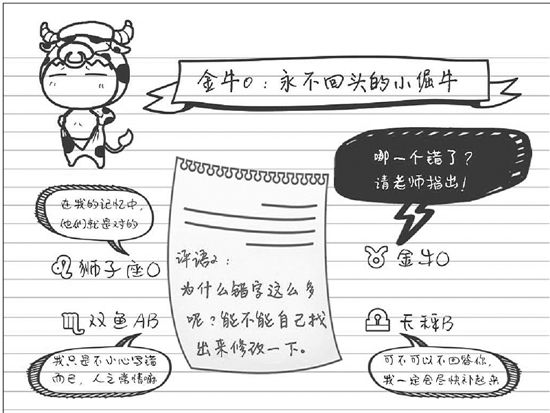 金牛O:永不回头的小倔牛
哪一个错了?
请老师指出!
在我的记忆中,
他们就是对的
狮子座O
评语2:
为什么错字这么多
呢?能不能自己找
出来修改一下。
金牛O
双鱼AB
天秤B
我只是不小心写错
而已,人之常情嘛
可不可以不回答你,
我一定会尽快补起来